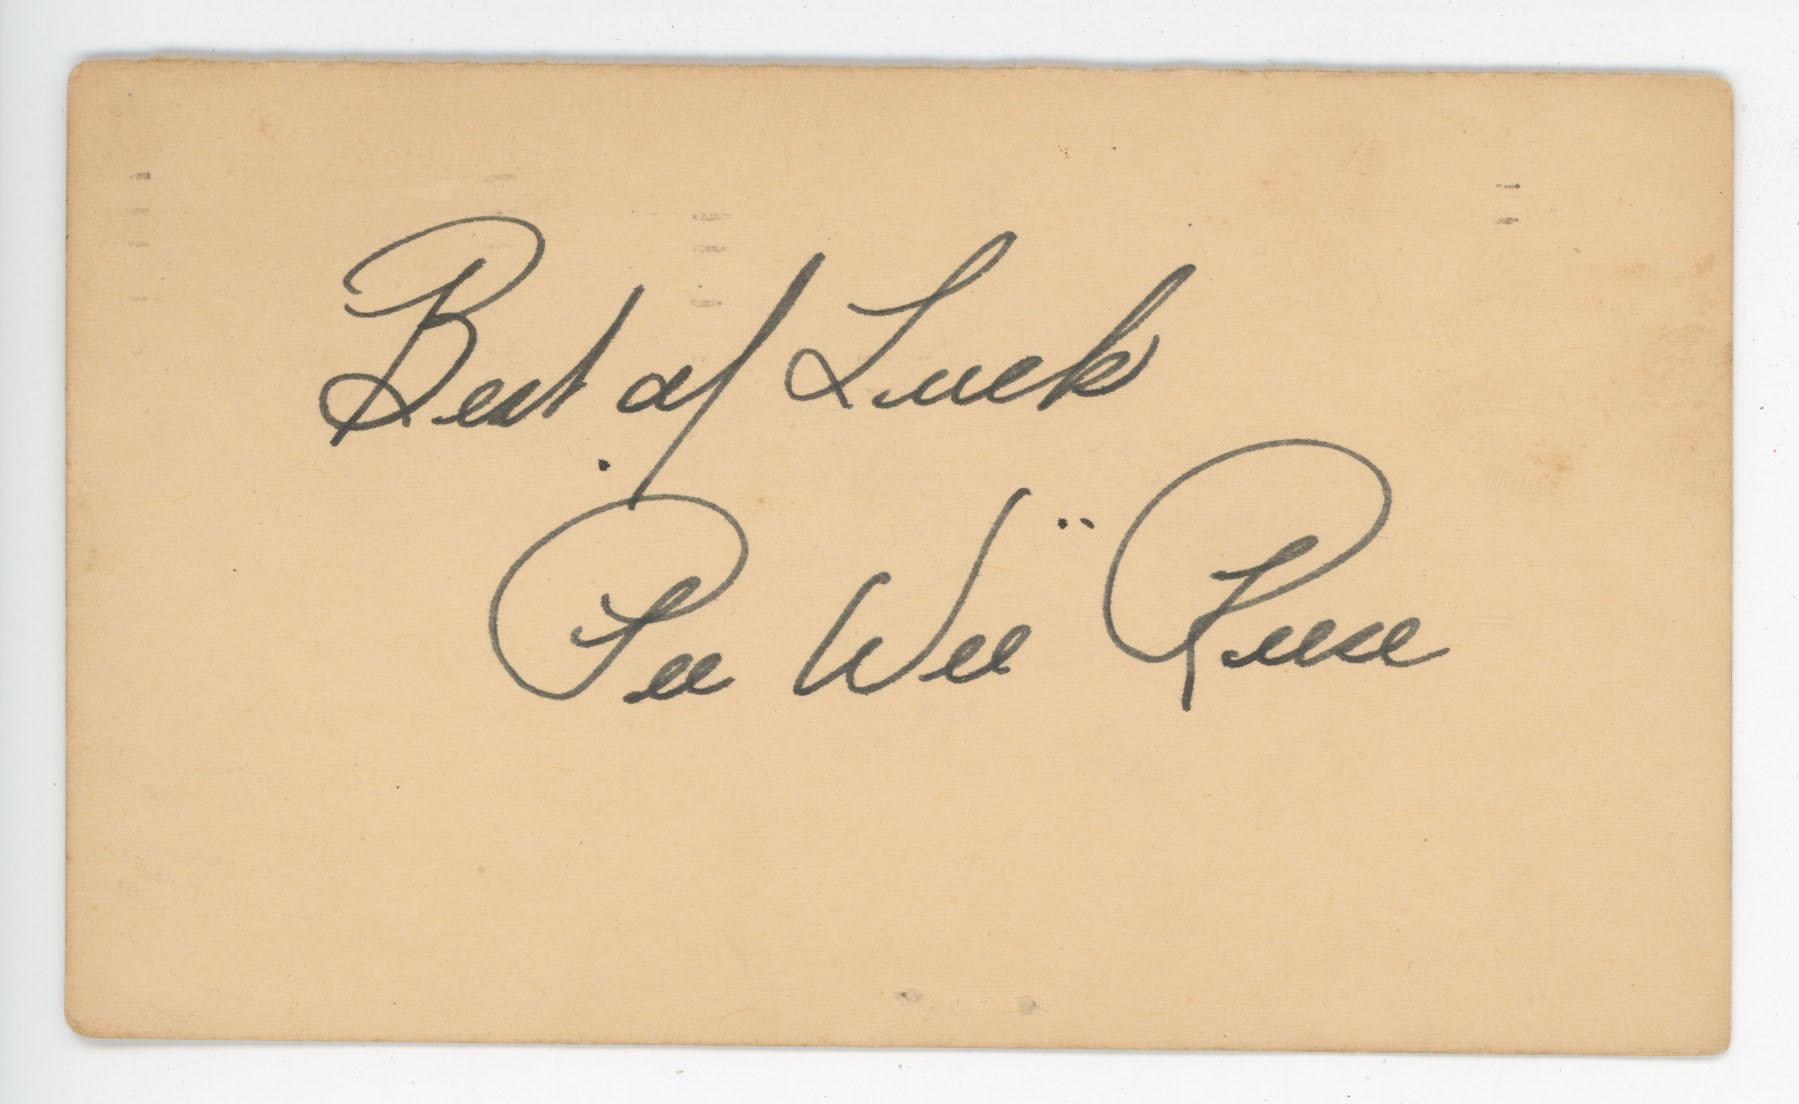 Best of Luck
"Pee Wee" Reese